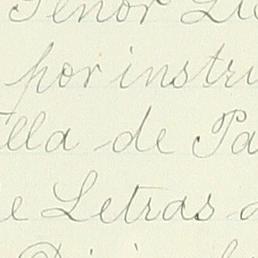 Señor Lic
por instru
illa de Pa
e Letras